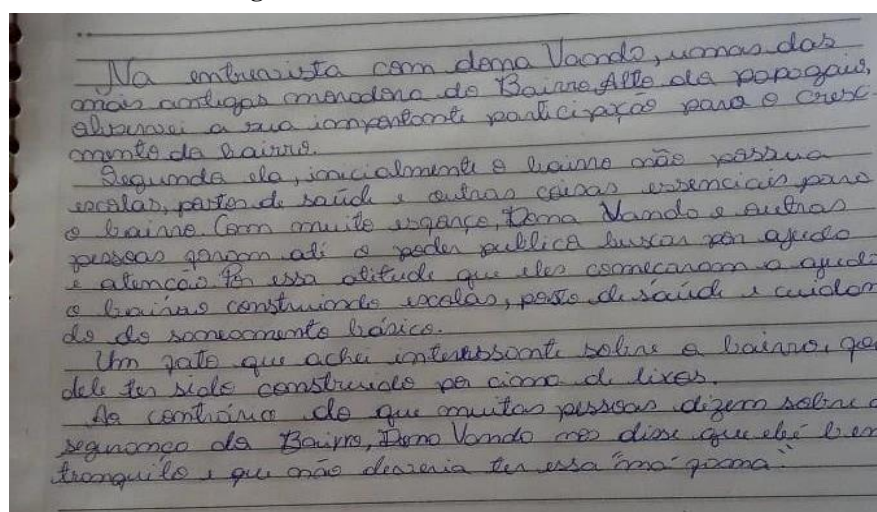 Na entrevista com dona Vanda, umas das
mais antigas moradora do Bairro Alto do papagaio,
observei a sua importante participação para o cresc-
mento do bairro.
Segundo ela, inicialmente o bairro não possua
escolas, postos de saúde e outras coisas essenciais para
o bairro. Com muito esforço, Dona Vanda e outras
pessoas foram até o poder publica buscar por ajuda
e atencão. Por essa atitude que eles comecaram a ajuda
o bairro construindo escolas, posto de saúde e cuidan
do do saneamento básico.
Um fato que achei interessante sobre o bairro, foi
dele ter sido construido por cima de lixos.
Ao contrário do que muitas pessoas dizem sobre a
segurança do Bairro, Dona Vanda nos disse que ele é bem
tranquilo e que não deveria ter essa "má fama"